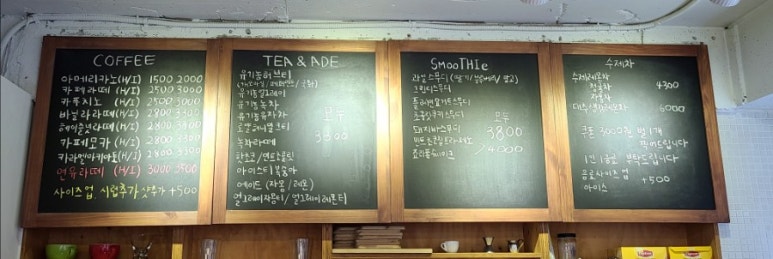 COFFEE
아메리카노(H/I) 1500 2000
카페라떼 (H/I) 2500 3000
카푸치노 (H/I) 2500 3000
바닐라라떼 (H/I) 2800 3300
헤이즐넛라떼 (H/I) 2800 3300
카페모카 (H/I) 2800 3300
카라멜마끼아또(H/I) 2800 3300
연유라떼 (H/I) 3000 3500
사이즈업, 시럽추가, 샷추가 +500
TEA & ADE
유기농허브티
유기농얼그레이
유기농녹차
유기농유자차
로얄밀크티
녹차라떼
모두
3300
핫초코/민트초콜릿
아이스티복숭아
에이드 (자몽/레몬)
SMOOTHIE
과일스무디 (딸기/블루베리/망고)
그린티스무디
플레인요거트스무디
초콜릿쿠키스무디
모두
3800
민트초코칩프라페노
4000
수제차
수제레몬차
청귤차
자몽차
4300
대추생강차
6000
쿠폰 3000원당 1개
1인 1음료 부탁드립니다
음료사이즈업
아이스
+500